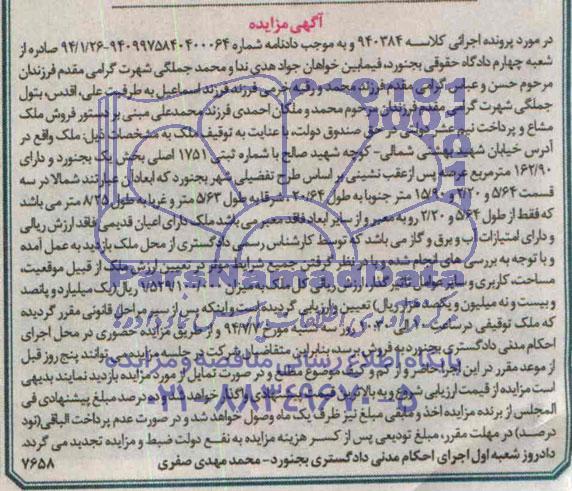 آگهی مزایده
در مورد پرونده اجرائی کلاسه ۹۴۰۳۸۴ و به موجب دادنامه شماره ۹۴۰۹۹۷۵۸۴۰۴۰۰۰۶۴-۹۴/۱/۲۶ صادره از
شعبه چهارم دادگاه حقوقی بجنورد، فیمابین خواهان جواد هدی ندا و محمد جملگی شهرت گرامی مقدم فرزندان
مرحوم حسن و عباس گرامی مقدم فرزند محمد و رقیه جرمی فرزند فرزند اسماعیل به طرفیت علی، اقدس، بتول
جملگی شهرت گرامی مقدم فرزندان مرحوم محمد و ملکان احمدی فرزند محمدعلی مبنی بر دستور فروش ملک
مشاع و پرداخت نیم عشر دولتی در حق صندوق دولت، با عنایت به توقیف ملک به مشخصات ذیل: ملک واقع در
آدرس خیابان شهید بهشتی شمالی- کوچه شهید صالح با شماره ثبتی ۱۷۵۱ اصلی بخش یک بجنورد و دارای
۱۶۲/۹۰ مترمربع عرصه پس از عقب نشینی بر اساس طرح تفصیلی شهر بجنورد که ابعاد آن عبارتند شمالا در سه
قسمت ۵/۶۴ و ۲/۲۰ و ۱۵/۹۰ متر جنوبا به طول ۲۰/۶۴ شرقا به طول ۵/۶۳ متر و غربا به طول ۸/۲۵ متر می باشد
که فقط از طول ۵/۶۴ و ۲/۲۰ رو به معبر و از سایر ابعاد فاقد معبر می باشد ملک دارای اعیان قدیمی فاقد ارزش ریالی
و دارای امتیازات آب و برق و گاز می باشد که توسط کارشناس رسمی دادگستری از محل ملک بازدید به عمل آمده
و با توجه به بررسی های انجام شده و با در نظر گرفتن جمیع شرایط موثر در تعیین ارزش ملک از قبیل موقعیت،
مساحت، کاربری و سایر عوامل تاثیرگذار، ارزش ریالی کل ملک به میزان ریال (یک میلیارد و پانصد
و بیست و نه میلیون و یکصد هزار ریال) تعیین و ارزیابی گردیده است و اینکه پس از سیر مراحل قانونی مقرر گردیده
که ملک توقیفی در ساعت ۱۰ الی روز سه شنبه مورخ ۹۴/۷/۷ و از طریق مزایده حضوری در محل اجرای
احکام مدنی دادگستری بجنورد به فروش برسد، بنابراین متقاضیان شرکت در جلسه مزایده می توانند پنج روز قبل
از موعد مقرر در این اجرا حاضر و از کم و کیف موضوع مطلع و در صورت تمایل از مورد مزایده بازدید نمایند بدیهی
است مزایده از قیمت ارزیابی شروع و به بالاترین قیمت پیشنهادی واگذار خواهد شد و ده درصد مبلغ پیشنهادی فی
المجلس از برنده مزایده اخذ و مابقی مبلغ نیز ظرف یک ماه وصول خواهد شد و در صورت عدم پرداخت الباقی (نود
درصد) در مهلت مقرر، مبلغ تودیعی پس از کسر هزینه مزایده به نفع دولت ضبط و مزایده تجدید می گردد.
دادروز شعبه اول اجرای احکام مدنی دادگستری بجنورد- محمد مهدی صفری ۷۶۵۸
ParsNamadData
پایگاه اطلاع رسانی مناقصه و مزایده
۰۲۱-۸۸۳۴۹۶۷۰-۵